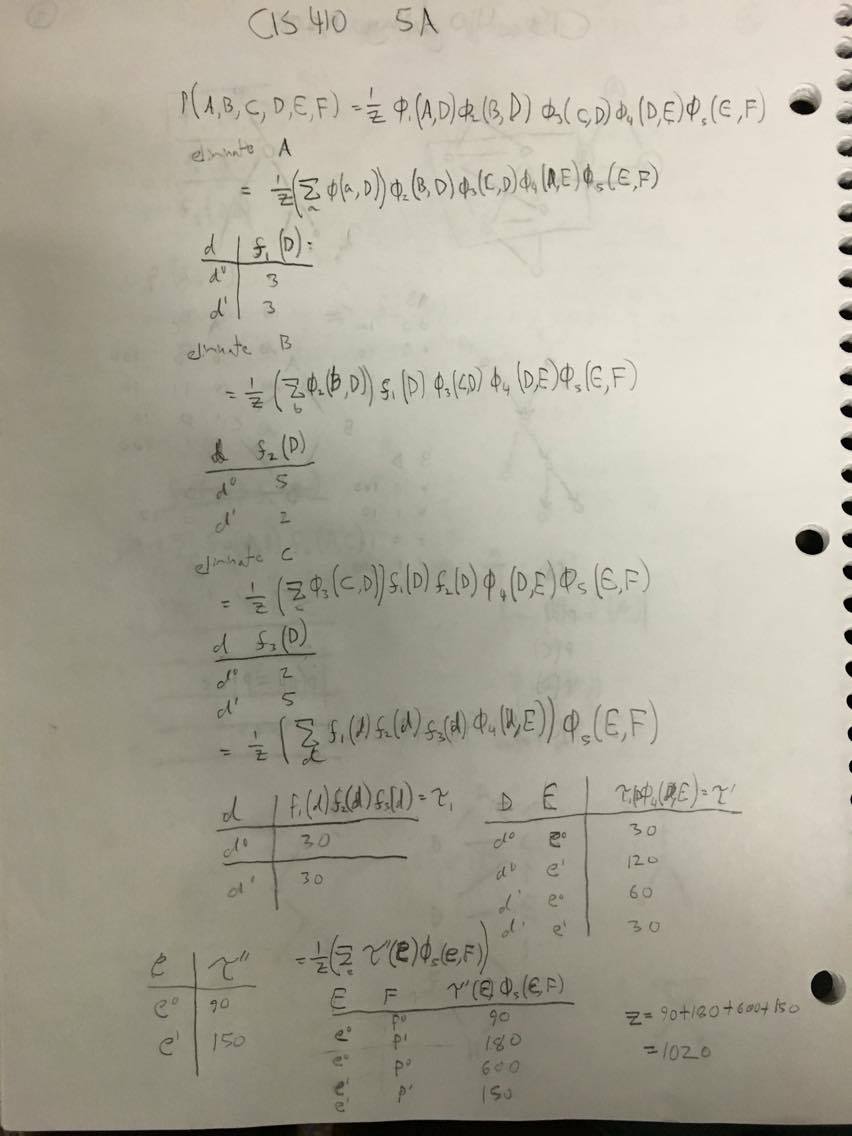 CIS 410 5A
P(A,B,C,D,E,F) = 1/Z Φ₁(A,D)Φ₂(B,D) Φ₃(C,D)Φ₄(D,E)Φ₅(E,F)
eliminate A
= 1/Z (Σₐ Φ(a,D)) Φ₂(B,D)Φ₃(C,D)Φ₄(D,E)Φ₅(E,F)
d | f₁(D):
d⁰ | 3
d¹ | 3
eliminate B
= 1/Z (Σ_b Φ₂(b,D)) f₁(D) Φ₃(C,D) Φ₄(D,E)Φ₅(E,F)
d f₂(D)
d⁰ 5
d¹ 2
eliminate C
= 1/Z (Σ_c Φ₃(C,D)) f₁(D) f₂(D) Φ₄(D,E) Φ₅(E,F)
d f₃(D)
d⁰ 2
d¹ 5
= 1/Z (Σ_d f₁(d) f₂(d) f₃(d) Φ₄(d,E)) Φ₅(E,F)
d | f₁(d)f₂(d)f₃(d) = τ₁
d⁰ | 30
d¹ | 30
D E | τ₁Φ₄(D,E) = τ'
d⁰ e⁰ | 30
d⁰ e¹ | 120
d¹ e⁰ | 60
d¹ e¹ | 30
e | τ''
e⁰ | 90
e¹ | 150
= 1/Z (Σ_e τ''(e)Φ₅(e,F))
E F τ''(E) Φ₅(E,F)
e⁰ F⁰ 90
e⁰ F¹ 180
e¹ F⁰ 600
e¹ F¹ 150
Z = 90+180+600+150
= 1020